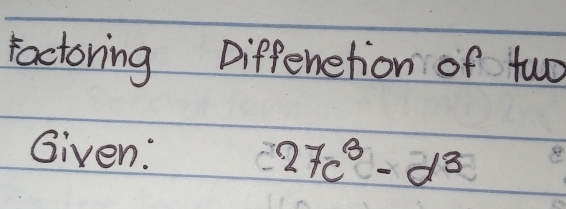 Factoring Diffenetion of two
Given: 27c³ - d³